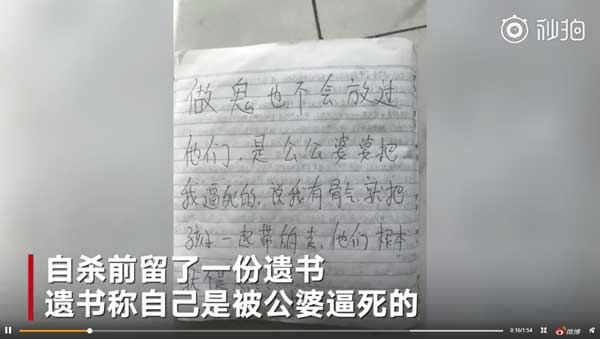 秒拍
做鬼也不会放过
他们,是公公婆婆把
我逼死的,说我有骨气,就把
孩子一起带的走,他们根本
自杀前留了一份遗书
遗书称自己是被公婆逼死的
0:16/1:54
微博